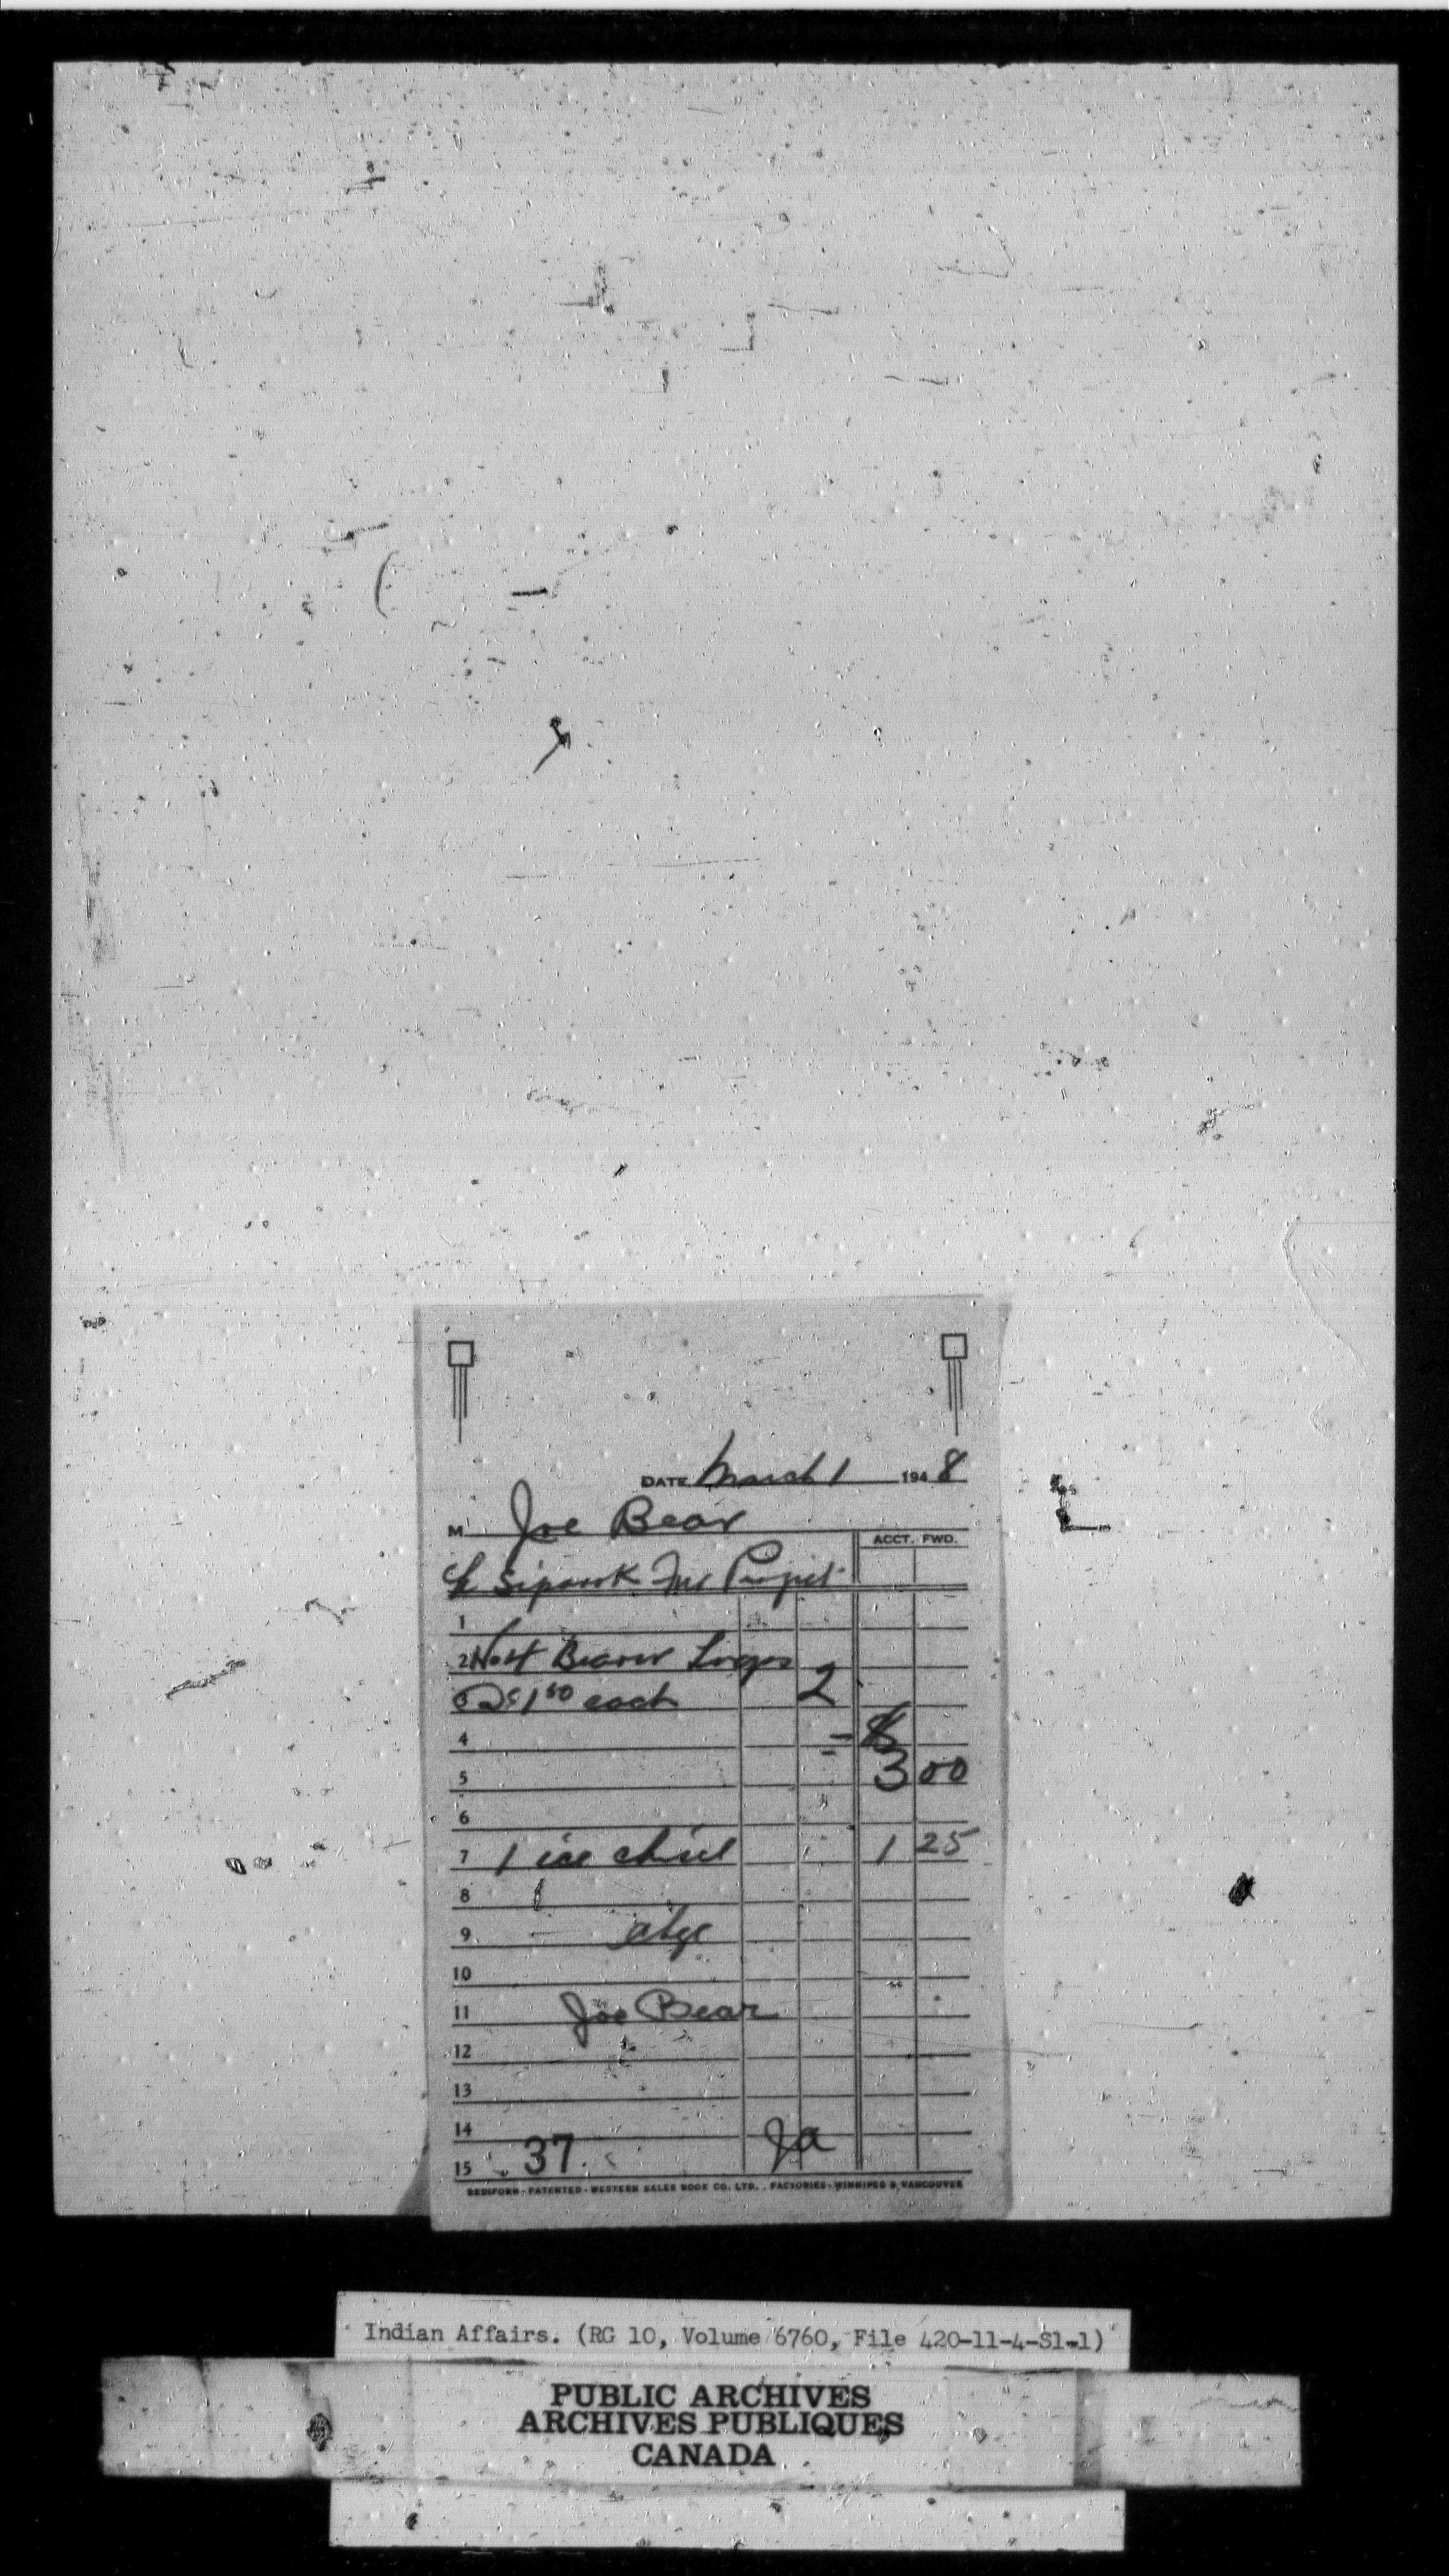 DATE March 1 1948
M Joe Bear
ACCT. FWD.
Sipawk Fur Project
1
2 No 4 Beaver
3 @ $1 50 each 2
4 - $
5 3 00
6
7 1 ice chisel 1 25
8
9
10
11 Joe Bear
12
13
14
15 37. Ja
REDIFORM - PATENTED - WESTERN SALES BOOK CO. LTD. . FACTORIES - WINNIPEG & VANCOUVER
Indian Affairs. (RG 10, Volume 6760, File 420-11-4-S1-1)
PUBLIC ARCHIVES
ARCHIVES PUBLIQUES
CANADA